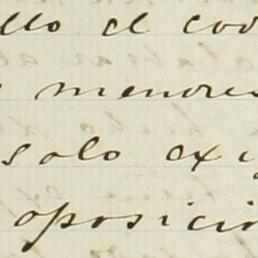 llo el cod
menores
solo exi
oposicio